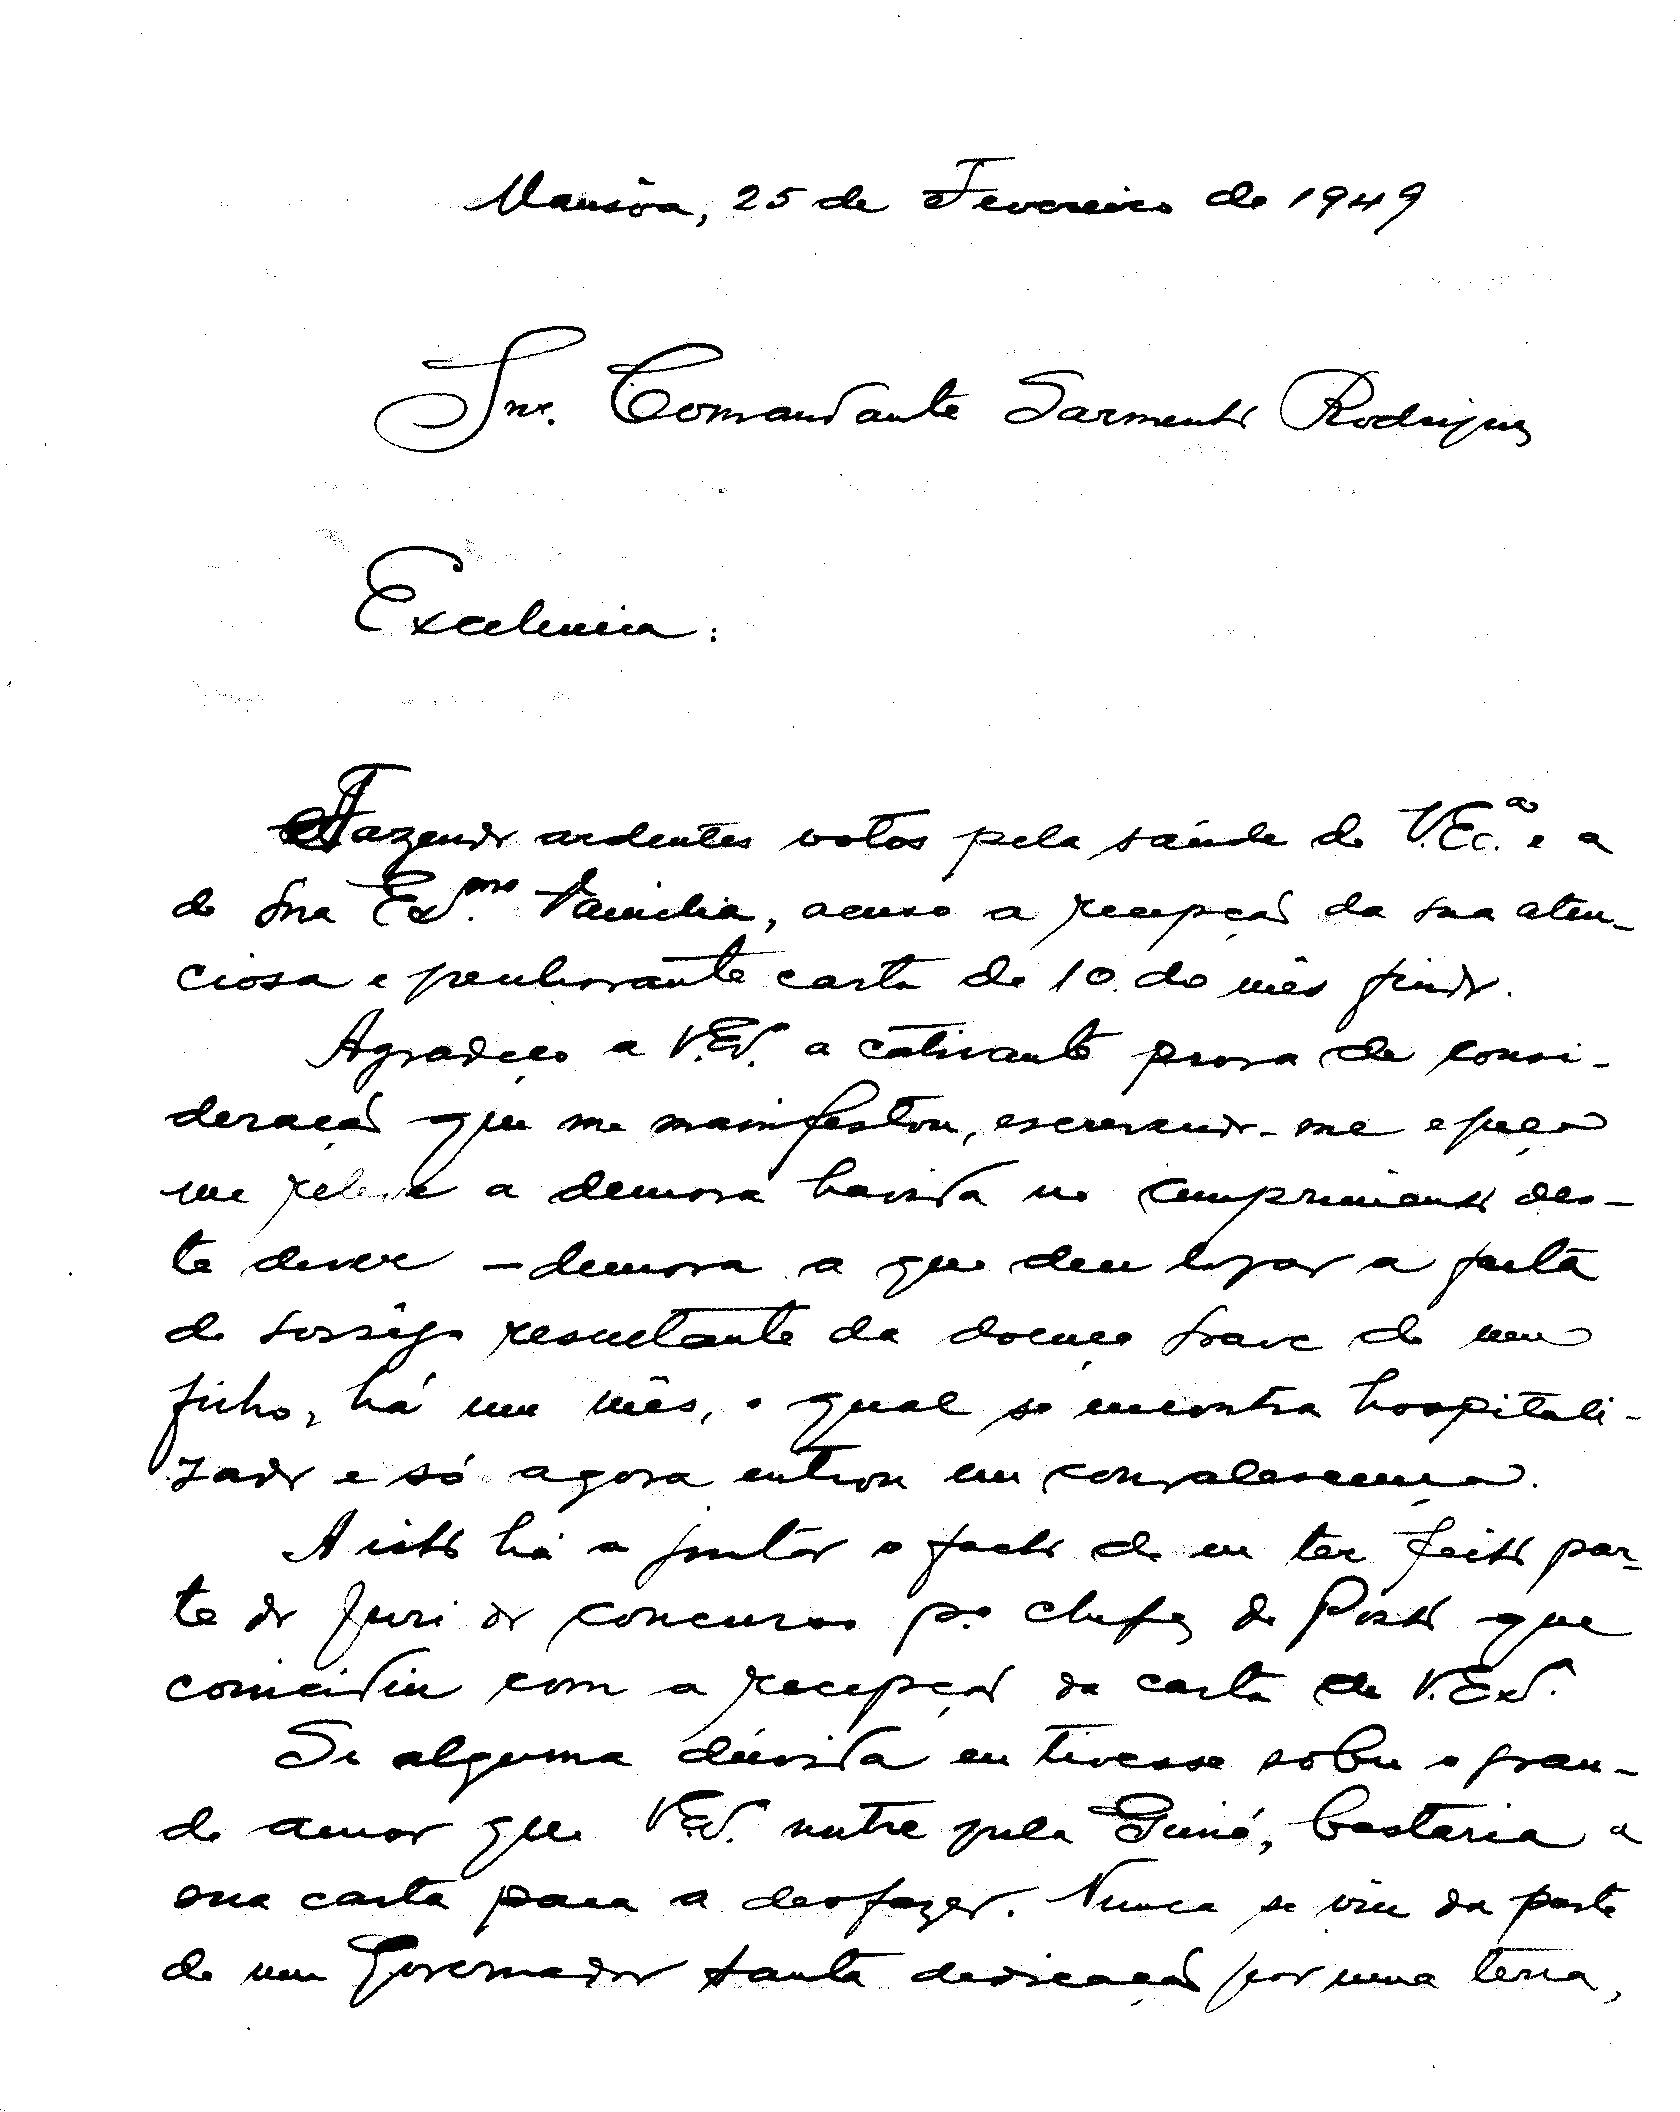 Mansôa, 25 de Fevereiro de 1949
Snr. Comandante Sarmento Rodrigues
Excelencia:
Fazendo ardentes votos pela saúde de V. Ec.ª e a
de Sua Ex.ma Familia, acuso a recepção da sua aten-
ciosa e penhorante carta de 10 do mês findo.
Agradeço a V. Ex.ª a cativante prova de consi-
deração que me manifestou, escrevendo-me e peço
me releve a demora havida no cumprimento des-
te dever - demora a que deu lugar a falta
de sossêgo resultante da doença grave de um
filho, há um mês, o qual se encontra hospitali-
zado e só agora entrou em convalescença.
A isto há a juntar o facto de eu ter feito par-
te do Juri do concurso p.ª chefes de Posto que
coincidiu com a recepção da carta de V. Ex.ª
Se alguma dúvida eu tivesse sobre o gran-
de amor que V. Ex.ª nutre pela Guiné, bastaria a
sua carta para a desfazer. Nunca se viu da parte
de um Governador tanta dedicação por uma terra,